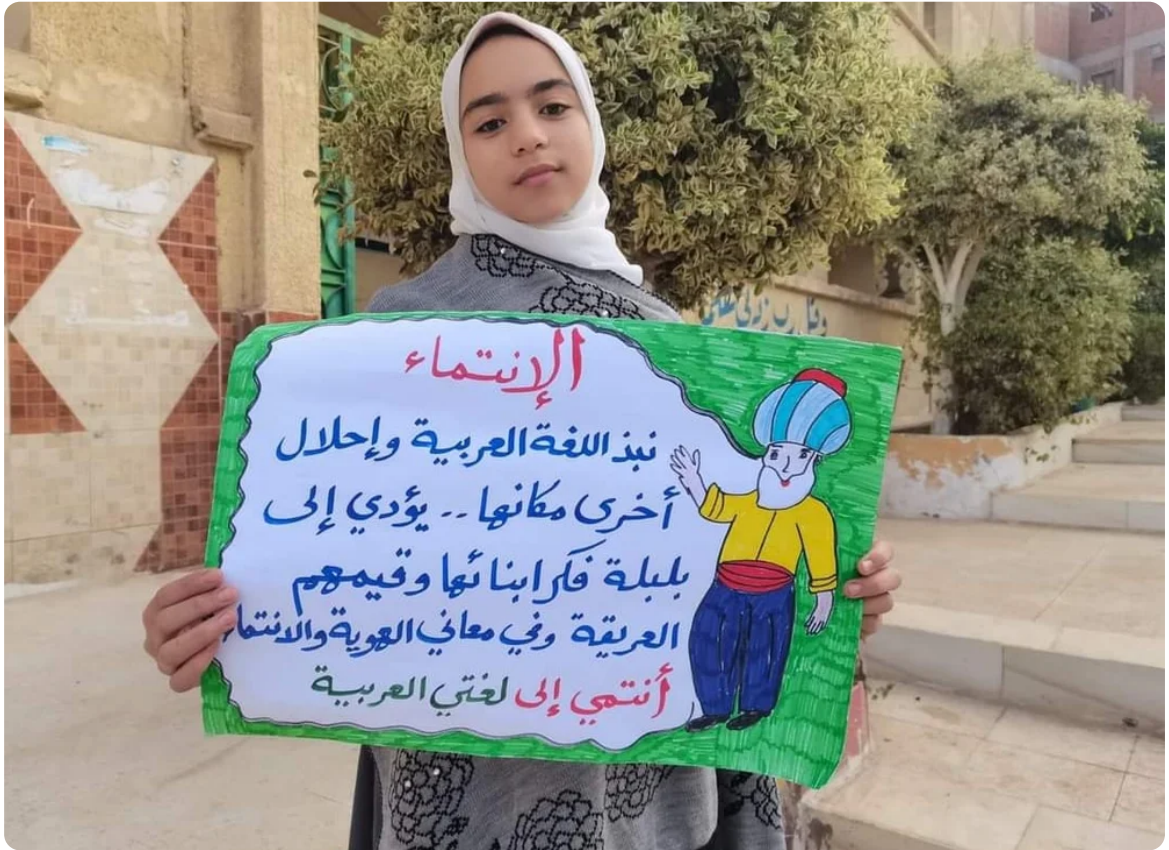 الإنتماء
نبذ اللغة العربية وإحلال
أخرى مكانها .. يؤدي إلى
بلبلة فكر ابنائها وقيمهم
العريقة وفي معاني الهوية والانتماء
أنتمي إلى لغتي العربية
وقل رب زدني علما